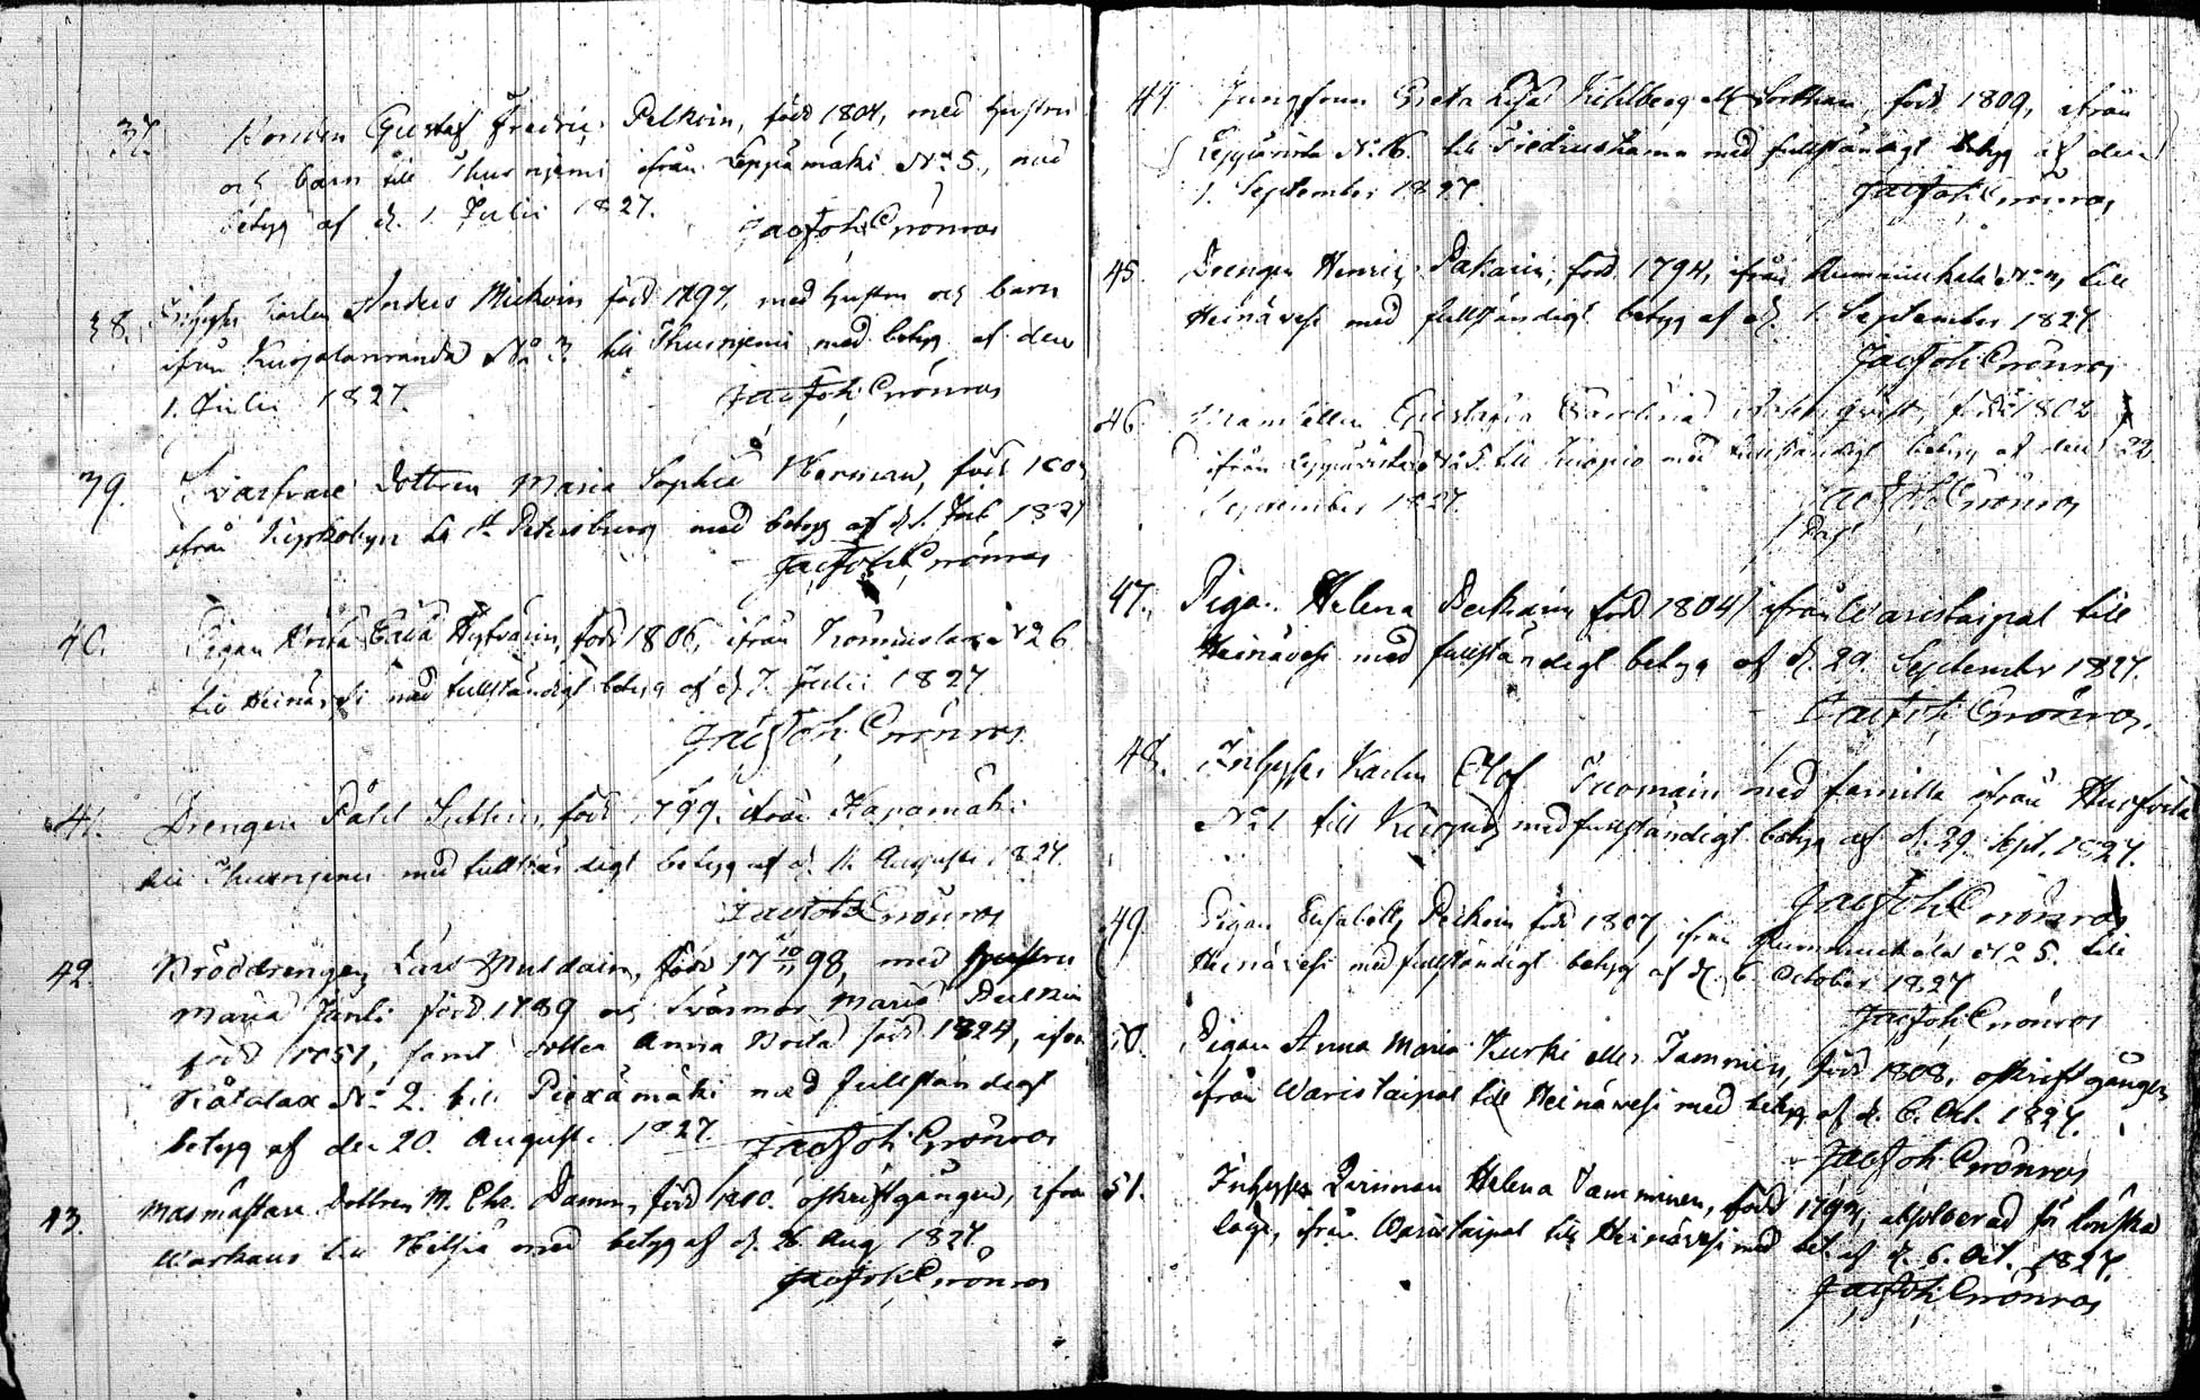 37. Bonden Gustaf Fredric Pelkoin, född 1804, med hustru
och barn till Thusniemi ifrån Leppämäki No 5, med
betyg af d. 1. Julii 1827.
Jac Joh Crönros
38. Inhyses Karlen Anders Mickoin född 1797, med hustru och barn
ifrån Kurjalanranda No 3 till Thusniemi med betyg af den
1. Julii 1827.
Jac Joh Crönros
39. Svarfvare Dottren Maria Sophia Herman, född
ifrån Kyrkobyn till St Petersburg med betyg af d. 1. Jul. 1827
Jac Joh Crönros
40. Pigan Brita Caisa Hyfväin, född 1806, ifrån No 6
till Heinävesi med fullständigt betyg af d. 7. Julii 1827
Jac Joh Crönros
41. Drengen Påhl Suttin, född 1799, ifrån Kapamäki
till Thusniemi med fullständigt betyg af d. 11. Augusti 1827.
Jac Joh Crönros
42. Bröddrengen Lars Muldain, född 17 10/11 98, med hustru
Maria Jänti född 1789 och Svärmor Maria Pulkin
född 1751, samt dotter Anna Brita född 1824, ifrån
Kåtalax No 2. till Piexämäki med fullständigt
betyg af den 20. Augusti 1827.
Jac Joh Crönros
43. Masmästare Dottren M. Chr. Damm, född 1810. oskriftgången, ifrån
Warkaus till Hilsiä med betyg af d. 26. Aug 1827.
Jac Joh Crönros
44. Jungfrun Greta Lisa Kihlberg född 1809, ifrån
Leppävirta No 16. till Fredrikshamn med fullständigt betyg af den
1. September 1827.
Jac Joh Crönros
45. Drengen Henric Pakarin, född 1794, ifrån Rummukala No 11, till
Heinävesi med fullständigt betyg af d. 1. September 1827
Jac Joh Crönros
46. Mamsellen Gustafva Carolina född 1802
ifrån Leppävirta No 5. till Kuopio med fullständigt betyg af den 22
September 1827.
Jac Joh Crönros
47. Pigan Helena Pakarin född 1804 ifrån Waristaipal till
Heinävesi med fullständigt betyg af d. 29. September 1827.
Jac Joh Crönros.
48. Inhyses Karlen Olof Tuomain med familla ifrån
No 1 till Kuopio med fullständigt betyg af d. 29. Sept. 1827.
Jac Joh Crönros
49 Pigan Elisabeth Peikoin född 1807, ifrån Rummukala No 5. till
Heinävesi med fullständigt betyg af d. 6. October 1827
Jac Joh Crönros
50. Pigan Anna Maria Kurki eller Tamminen, född 1808, oskriftgången
ifrån Waristaipal till Heinävesi med betyg af d. 6. Oct. 1827.
Jac Joh Crönros
51. Inhyses Qvinnan Helena Tamminen, född 1794, absolverad för lönska
läge, ifrån Waristaipal till Heinävesi med bet. af d. 6. Oct. 1827.
Jac Joh Crönros